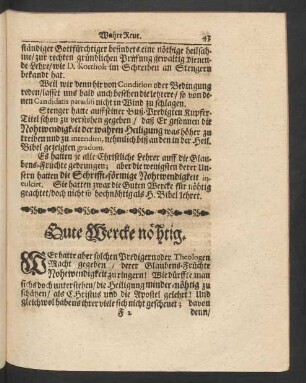 Wahrer Reue. 43
ständiger Gottsfürchtiger befindets eine nöthige heilsah-
me/zur rechten gründlichen Prüffung gewaltig dienen-
de Lehre/wie D. Kortholt im Schreiben an Stengern
bekandt hat.
Weil wir denn hie von Condition oder Bedingung
reden/lasset uns bald auch besehen die lehre/ so von de-
nen Candidatis paradisi nicht in Wind zu schlagen.
Stenger hatte auff seiner Buß-Predigten Kupffer-
Titel schon zu verstehen gegeben/ daß Er gesonnen die
Nohtwendigkeit der wahren Heiligung was höher zu
treiben und zu intendirn, nehmlich biß an den in der Heil.
Bibel gezeigten gradum.
Es hatten ja alle Christliche Lehrer auff die Glau-
bens-Früchte gedrungen; aber die wenigsten derer Un-
sern hatten die Schrifft-förmige Nohtwendigkeit in-
culcirt. Sie hatten zwar die Guten Werck für nöhtig
geachtet/doch nicht so hochnöhtig als H. Bibel lehret.
Gute Wercke nöhtig.
WEr hatte aber solchen Predigern oder Theologen
Macht gegeben / derer Glaubens-Früchte
Nohtwendigkeit zu ringern? Wie dürffte man
sichs doch unterstehen/die Heiligung minder-nöhtig zu
schätzen/ als Christus und die Apostel gelehrt! Und
gleichwol habens ihrer viele sich nicht gescheuet; davon
F 2 denn/